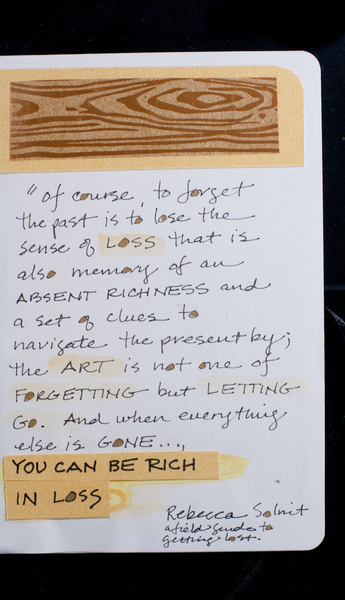 "of course, to forget
the past is to lose the
sense of LOSS that is
also memory of an
ABSENT RICHNESS and
a set of clues to
navigate the present by;
the ART is not one of
FORGETTING but LETTING
GO. And when everything
else is GONE...,
YOU CAN BE RICH
IN LOSS
Rebecca Solnit
a field guide to
getting lost.